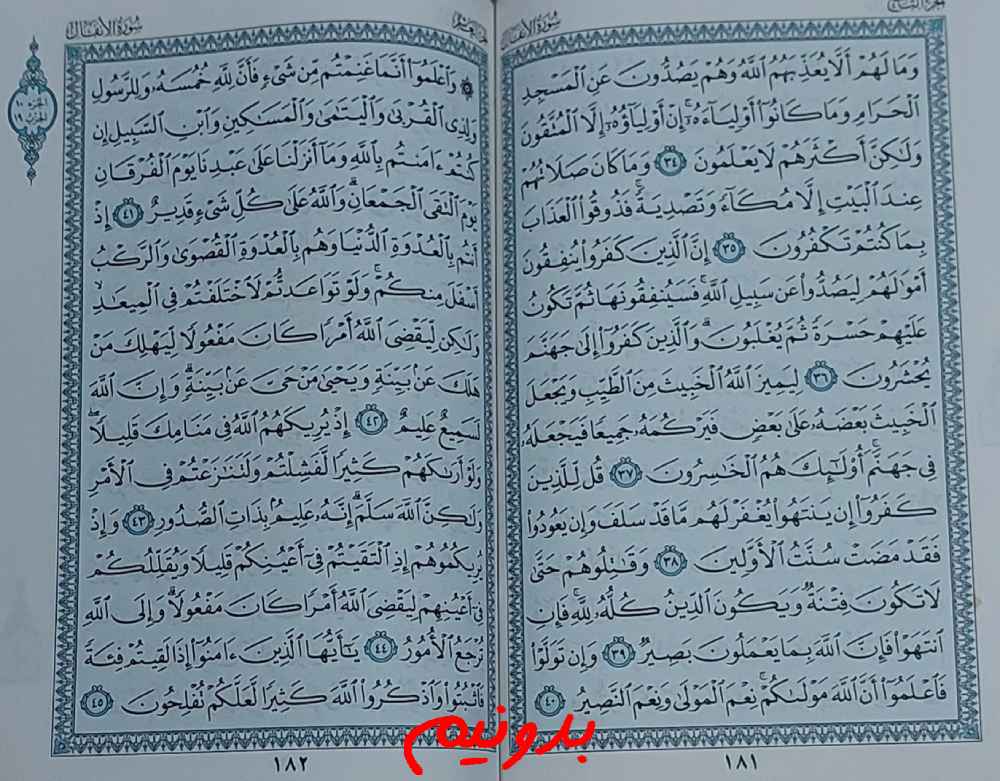 الجزء التاسع
سورة الأنفال
وَمَا لَهُمْ أَلَّا يُعَذِّبَهُمُ ٱللَّهُ وَهُمْ يَصُدُّونَ عَنِ ٱلْمَسْجِدِ
ٱلْحَرَامِ وَمَا كَانُوٓا۟ أَوْلِيَآءَهُۥٓ ۚ إِنْ أَوْلِيَآؤُهُۥٓ إِلَّا ٱلْمُتَّقُونَ
وَلَٰكِنَّ أَكْثَرَهُمْ لَا يَعْلَمُونَ ٣٤ وَمَا كَانَ صَلَاتُهُمْ
عِندَ ٱلْبَيْتِ إِلَّا مُكَآءً وَتَصْدِيَةً ۚ فَذُوقُوا۟ ٱلْعَذَابَ
بِمَا كُنتُمْ تَكْفُرُونَ ٣٥ إِنَّ ٱلَّذِينَ كَفَرُوا۟ يُنفِقُونَ
أَمْوَٰلَهُمْ لِيَصُدُّوا۟ عَن سَبِيلِ ٱللَّهِ ۚ فَسَيُنفِقُونَهَا ثُمَّ تَكُونُ
عَلَيْهِمْ حَسْرَةً ثُمَّ يُغْلَبُونَ ۗ وَٱلَّذِينَ كَفَرُوٓا۟ إِلَىٰ جَهَنَّمَ
يُحْشَرُونَ ٣٦ لِيَمِيزَ ٱللَّهُ ٱلْخَبِيثَ مِنَ ٱلطَّيِّبِ وَيَجْعَلَ
ٱلْخَبِيثَ بَعْضَهُۥ عَلَىٰ بَعْضٍ فَيَرْكُمَهُۥ جَمِيعًا فَيَجْعَلَهُۥ
فِى جَهَنَّمَ ۚ أُو۟لَٰٓئِكَ هُمُ ٱلْخَٰسِرُونَ ٣٧ قُل لِّلَّذِينَ
كَفَرُوٓا۟ إِن يَنتَهُوا۟ يُغْفَرْ لَهُم مَّا قَدْ سَلَفَ وَإِن يَعُودُوا۟
فَقَدْ مَضَتْ سُنَّتُ ٱلْأَوَّلِينَ ٣٨ وَقَٰتِلُوهُمْ حَتَّىٰ
لَا تَكُونَ فِتْنَةٌ وَيَكُونَ ٱلدِّينُ كُلُّهُۥ لِلَّهِ ۚ فَإِنِ
ٱنتَهَوْا۟ فَإِنَّ ٱللَّهَ بِمَا يَعْمَلُونَ بَصِيرٌ ٣٩ وَإِن تَوَلَّوْا۟
فَٱعْلَمُوٓا۟ أَنَّ ٱللَّهَ مَوْلَىٰكُمْ ۚ نِعْمَ ٱلْمَوْلَىٰ وَنِعْمَ ٱلنَّصِيرُ ٤٠
١٨١
سورة الأنفال
۞ وَٱعْلَمُوٓا۟ أَنَّمَا غَنِمْتُم مِّن شَىْءٍ فَأَنَّ لِلَّهِ خُمُسَهُۥ وَلِلرَّسُولِ
وَلِذِى ٱلْقُرْبَىٰ وَٱلْيَتَٰمَىٰ وَٱلْمَسَٰكِينِ وَٱبْنِ ٱلسَّبِيلِ إِن
كُنتُمْ ءَامَنتُم بِٱللَّهِ وَمَآ أَنزَلْنَا عَلَىٰ عَبْدِنَا يَوْمَ ٱلْفُرْقَانِ
يَوْمَ ٱلْتَقَى ٱلْجَمْعَانِ ۗ وَٱللَّهُ عَلَىٰ كُلِّ شَىْءٍ قَدِيرٌ ٤١ إِذْ
أَنتُم بِٱلْعُدْوَةِ ٱلدُّنْيَا وَهُم بِٱلْعُدْوَةِ ٱلْقُصْوَىٰ وَٱلرَّكْبُ
أَسْفَلَ مِنكُمْ ۚ وَلَوْ تَوَاعَدتُّمْ لَٱخْتَلَفْتُمْ فِى ٱلْمِيعَٰدِ ۙ
وَلَٰكِن لِّيَقْضِىَ ٱللَّهُ أَمْرًا كَانَ مَفْعُولًا لِّيَهْلِكَ مَنْ
هَلَكَ عَنۢ بَيِّنَةٍ وَيَحْيَىٰ مَنْ حَىَّ عَنۢ بَيِّنَةٍ ۗ وَإِنَّ ٱللَّهَ
لَسَمِيعٌ عَلِيمٌ ٤٢ إِذْ يُرِيكَهُمُ ٱللَّهُ فِى مَنَامِكَ قَلِيلًا ۖ
وَلَوْ أَرَىٰكَهُمْ كَثِيرًا لَّفَشِلْتُمْ وَلَتَنَٰزَعْتُمْ فِى ٱلْأَمْرِ
وَلَٰكِنَّ ٱللَّهَ سَلَّمَ ۗ إِنَّهُۥ عَلِيمٌۢ بِذَاتِ ٱلصُّدُورِ ٤٣ وَإِذْ
يُرِيكُمُوهُمْ إِذِ ٱلْتَقَيْتُمْ فِىٓ أَعْيُنِكُمْ قَلِيلًا وَيُقَلِّلُكُمْ
فِىٓ أَعْيُنِهِمْ لِيَقْضِىَ ٱللَّهُ أَمْرًا كَانَ مَفْعُولًا ۗ وَإِلَى ٱللَّهِ
تُرْجَعُ ٱلْأُمُورُ ٤٤ يَٰٓأَيُّهَا ٱلَّذِينَ ءَامَنُوٓا۟ إِذَا لَقِيتُمْ فِئَةً
فَٱثْبُتُوا۟ وَٱذْكُرُوا۟ ٱللَّهَ كَثِيرًا لَّعَلَّكُمْ تُفْلِحُونَ ٤٥
١٨٢
الجزء ١٠
الحزب ١٩
بدونیم